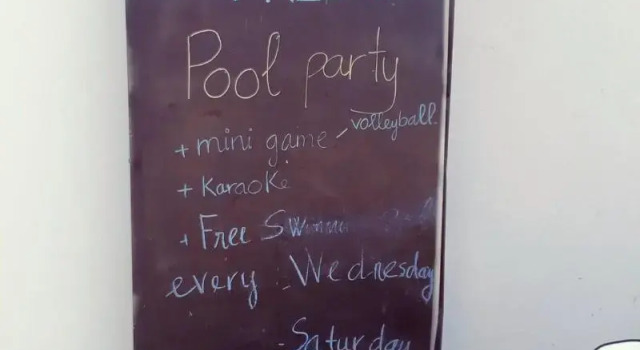 Pool party
+ mini game / volleyball
+ Karaoke
+ Free
every : Wednesday
- Saturday